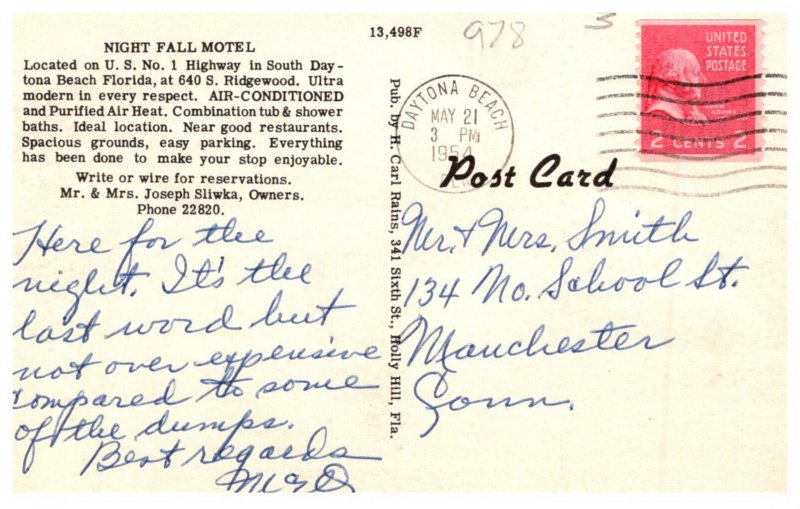 13,498F
978
3
NIGHT FALL MOTEL
Located on U. S. No. 1 Highway in South Day-
tona Beach Florida, at 640 S. Ridgewood. Ultra
modern in every respect. AIR-CONDITIONED
and Purified Air Heat. Combination tub & shower
baths. Ideal location. Near good restaurants.
Spacious grounds, easy parking. Everything
has been done to make your stop enjoyable.
Write or wire for reservations.
Mr. & Mrs. Joseph Sliwka, Owners.
Phone 22820.
Here for the
night. It's the
last word but
not over expensive
compared to some
of the dumps.
Best regards
Pub. by H. Carl Rains, 341 Sixth St., Holly Hill, Fla.
DAYTONA BEACH
MAY 21
3 PM
1954
UNITED
STATES
POSTAGE
JOHN
ADAMS
2 CENTS 2
Post Card
Mr. & Mrs. Smith
134 No. School St.
Manchester
Conn.